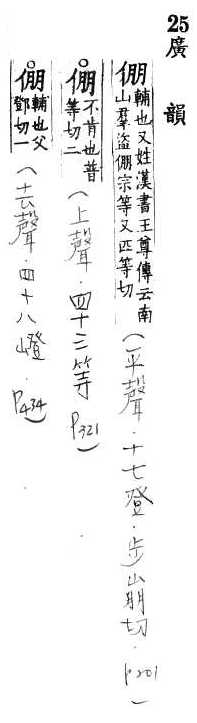 25 廣韻
倗 輔也又姓漢書王尊傳云南山羣盜倗宗等又匹等切 (平聲·十七登·步崩切·p201)
倗 不肯也普等切二 (上聲·四十三等 P321)
倗 輔也父鄧切一 (去聲·四十八嶝·P434)